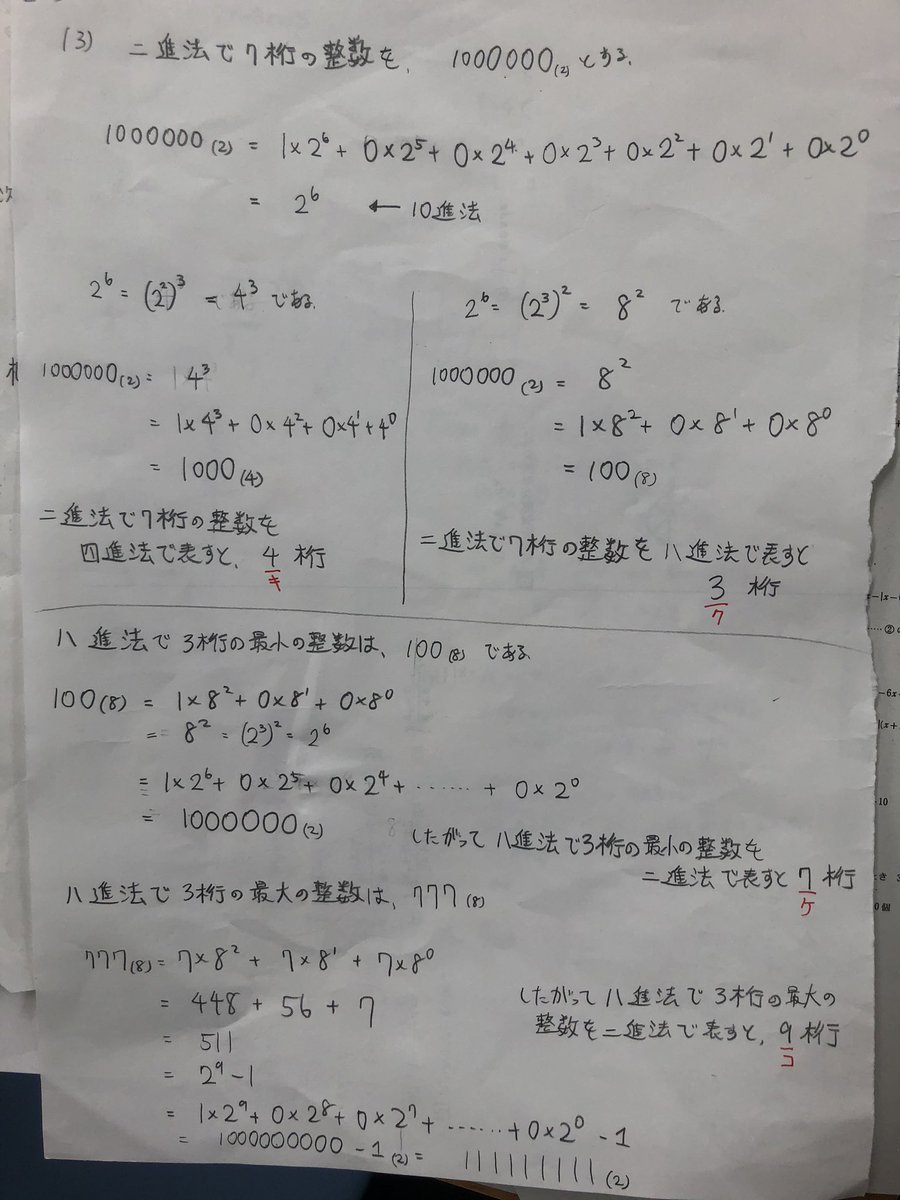 (3) 二進法で7桁の整数を、1000000(2)とする。
1000000(2) = 1×2⁶ + 0×2⁵ + 0×2⁴ + 0×2³ + 0×2² + 0×2¹ + 0×2⁰
= 2⁶ ← 10進法
2⁶ = (2²)³ = 4³ である。
1000000(2) = 4³
= 1×4³ + 0×4² + 0×4¹ + 4⁰
= 1000(4)
二進法で7桁の整数を
四進法で表すと、4桁
キ
2⁶ = (2³)² = 8² である。
1000000(2) = 8²
= 1×8² + 0×8¹ + 0×8⁰
= 100(8)
二進法で7桁の整数を八進法で表すと
3桁
ク
八進法で3桁の最小の整数は、100(8)である。
100(8) = 1×8² + 0×8¹ + 0×8⁰
= 8² = (2³)² = 2⁶
= 1×2⁶ + 0×2⁵ + 0×2⁴ + …… + 0×2⁰
= 1000000(2)
したがって八進法で3桁の最小の整数を
二進法で表すと7桁
ケ
八進法で3桁の最大の整数は、777(8)
777(8) = 7×8² + 7×8¹ + 7×8⁰
= 448 + 56 + 7
= 511
= 2⁹-1
= 1×2⁹ + 0×2⁸ + 0×2⁷ + …… + 0×2⁰ - 1
= 1000000000 - 1(2) = 111111111(2)
したがって八進法で3桁の最大の
整数を二進法で表すと、9桁
コ